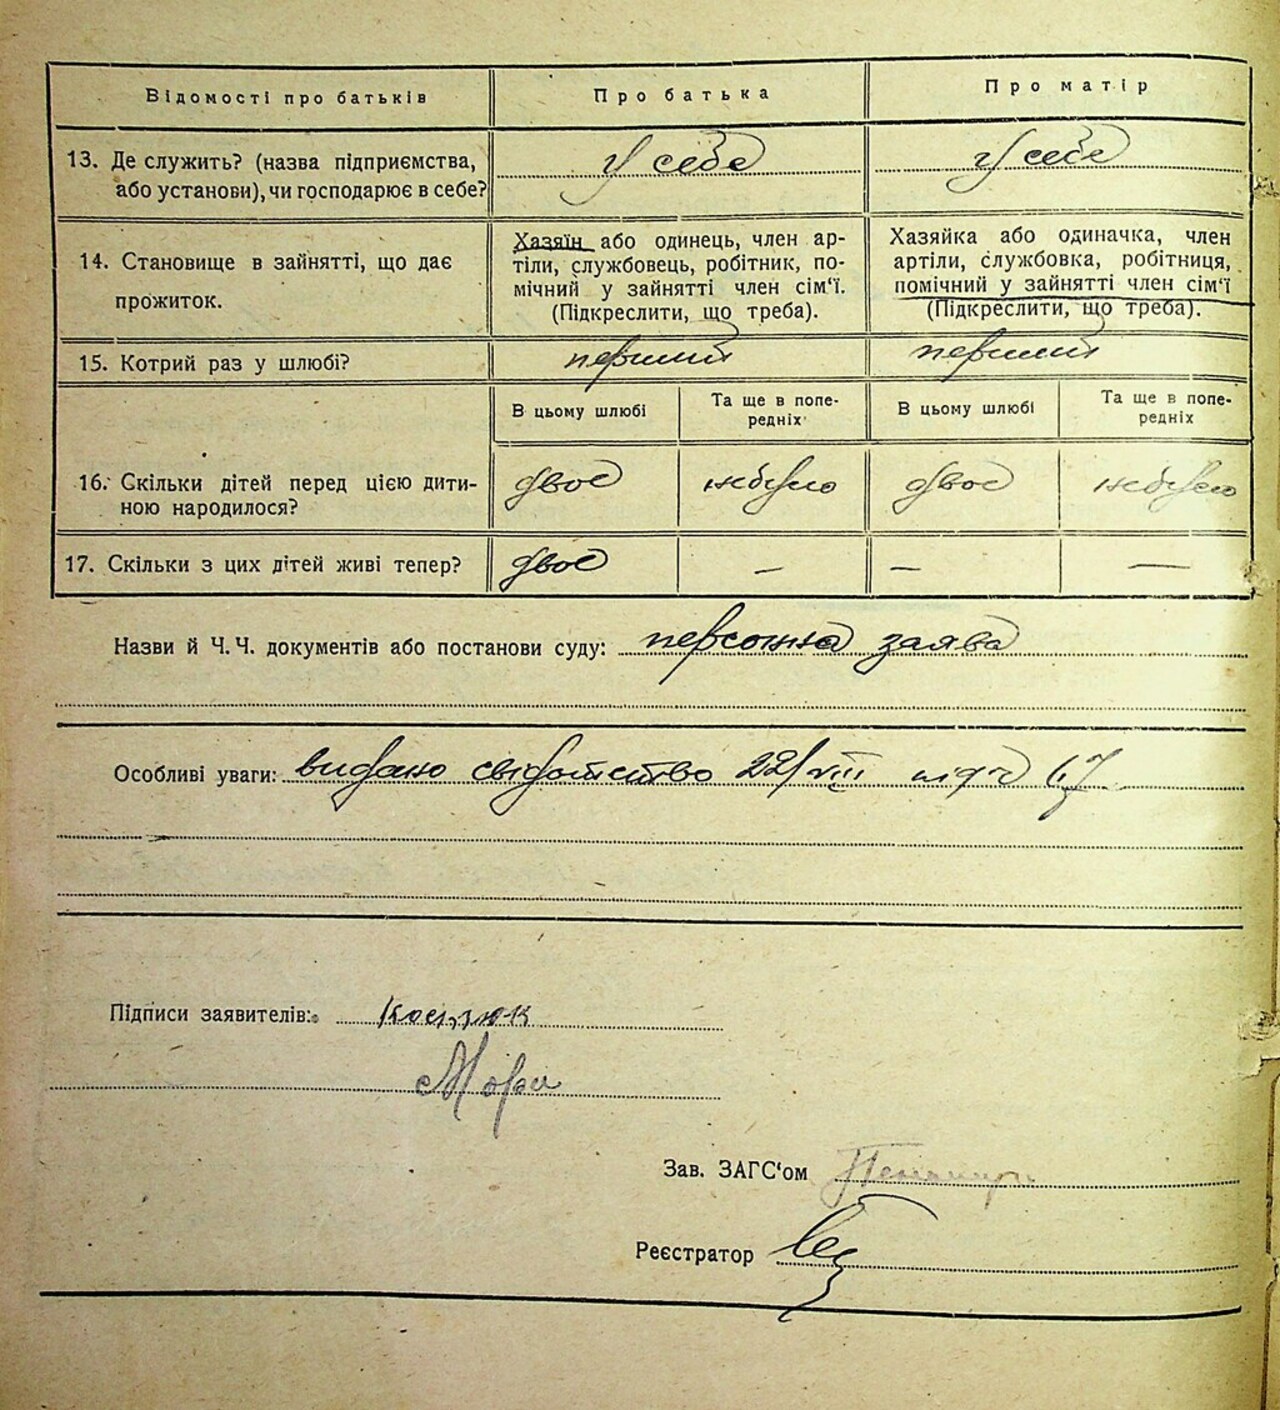 Відомості про батьків Про батька Про матір
13. Де служить? (назва підприємства, або установи), чи господарює в себе?
У себе
У себе
14. Становище в зайнятті, що дає прожиток.
Хазяїн або одинець, член ар-
тіли, службовець, робітник, по-
мічний у зайнятті член сім‘ї.
(Підкреслити, що треба).
Хазяйка або одиначка, член
артіли, службовка, робітниця,
помічний у зайнятті член сім‘ї
(Підкреслити, що треба).
15. Котрий раз у шлюбі? перший перший
В цьому шлюбі
Та ще в попе-
редніх
В цьому шлюбі
Та ще в попе-
редніх
16. Скільки дітей перед цією дити-
ною народилося?
двоє небуло двоє небуло
17. Скільки з цих дітей живі тепер? двоє — — —
Назви й Ч. Ч. документів або постанови суду: персонна заява
Особливі уваги: видано свідотство 22/VIII під ч
Підписи заявителів: Костюк
Зав. ЗАГС‘ом
Реєстратор